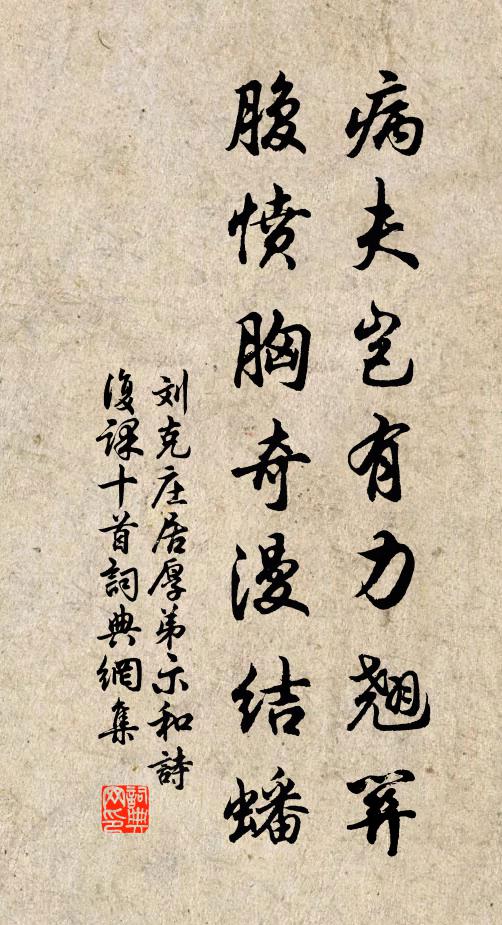 病夫岂有力翘关
腹愤胸奇漫结蟠
刘克庄居厚弟示和詩
復課十首詞典網集
詞典
网印